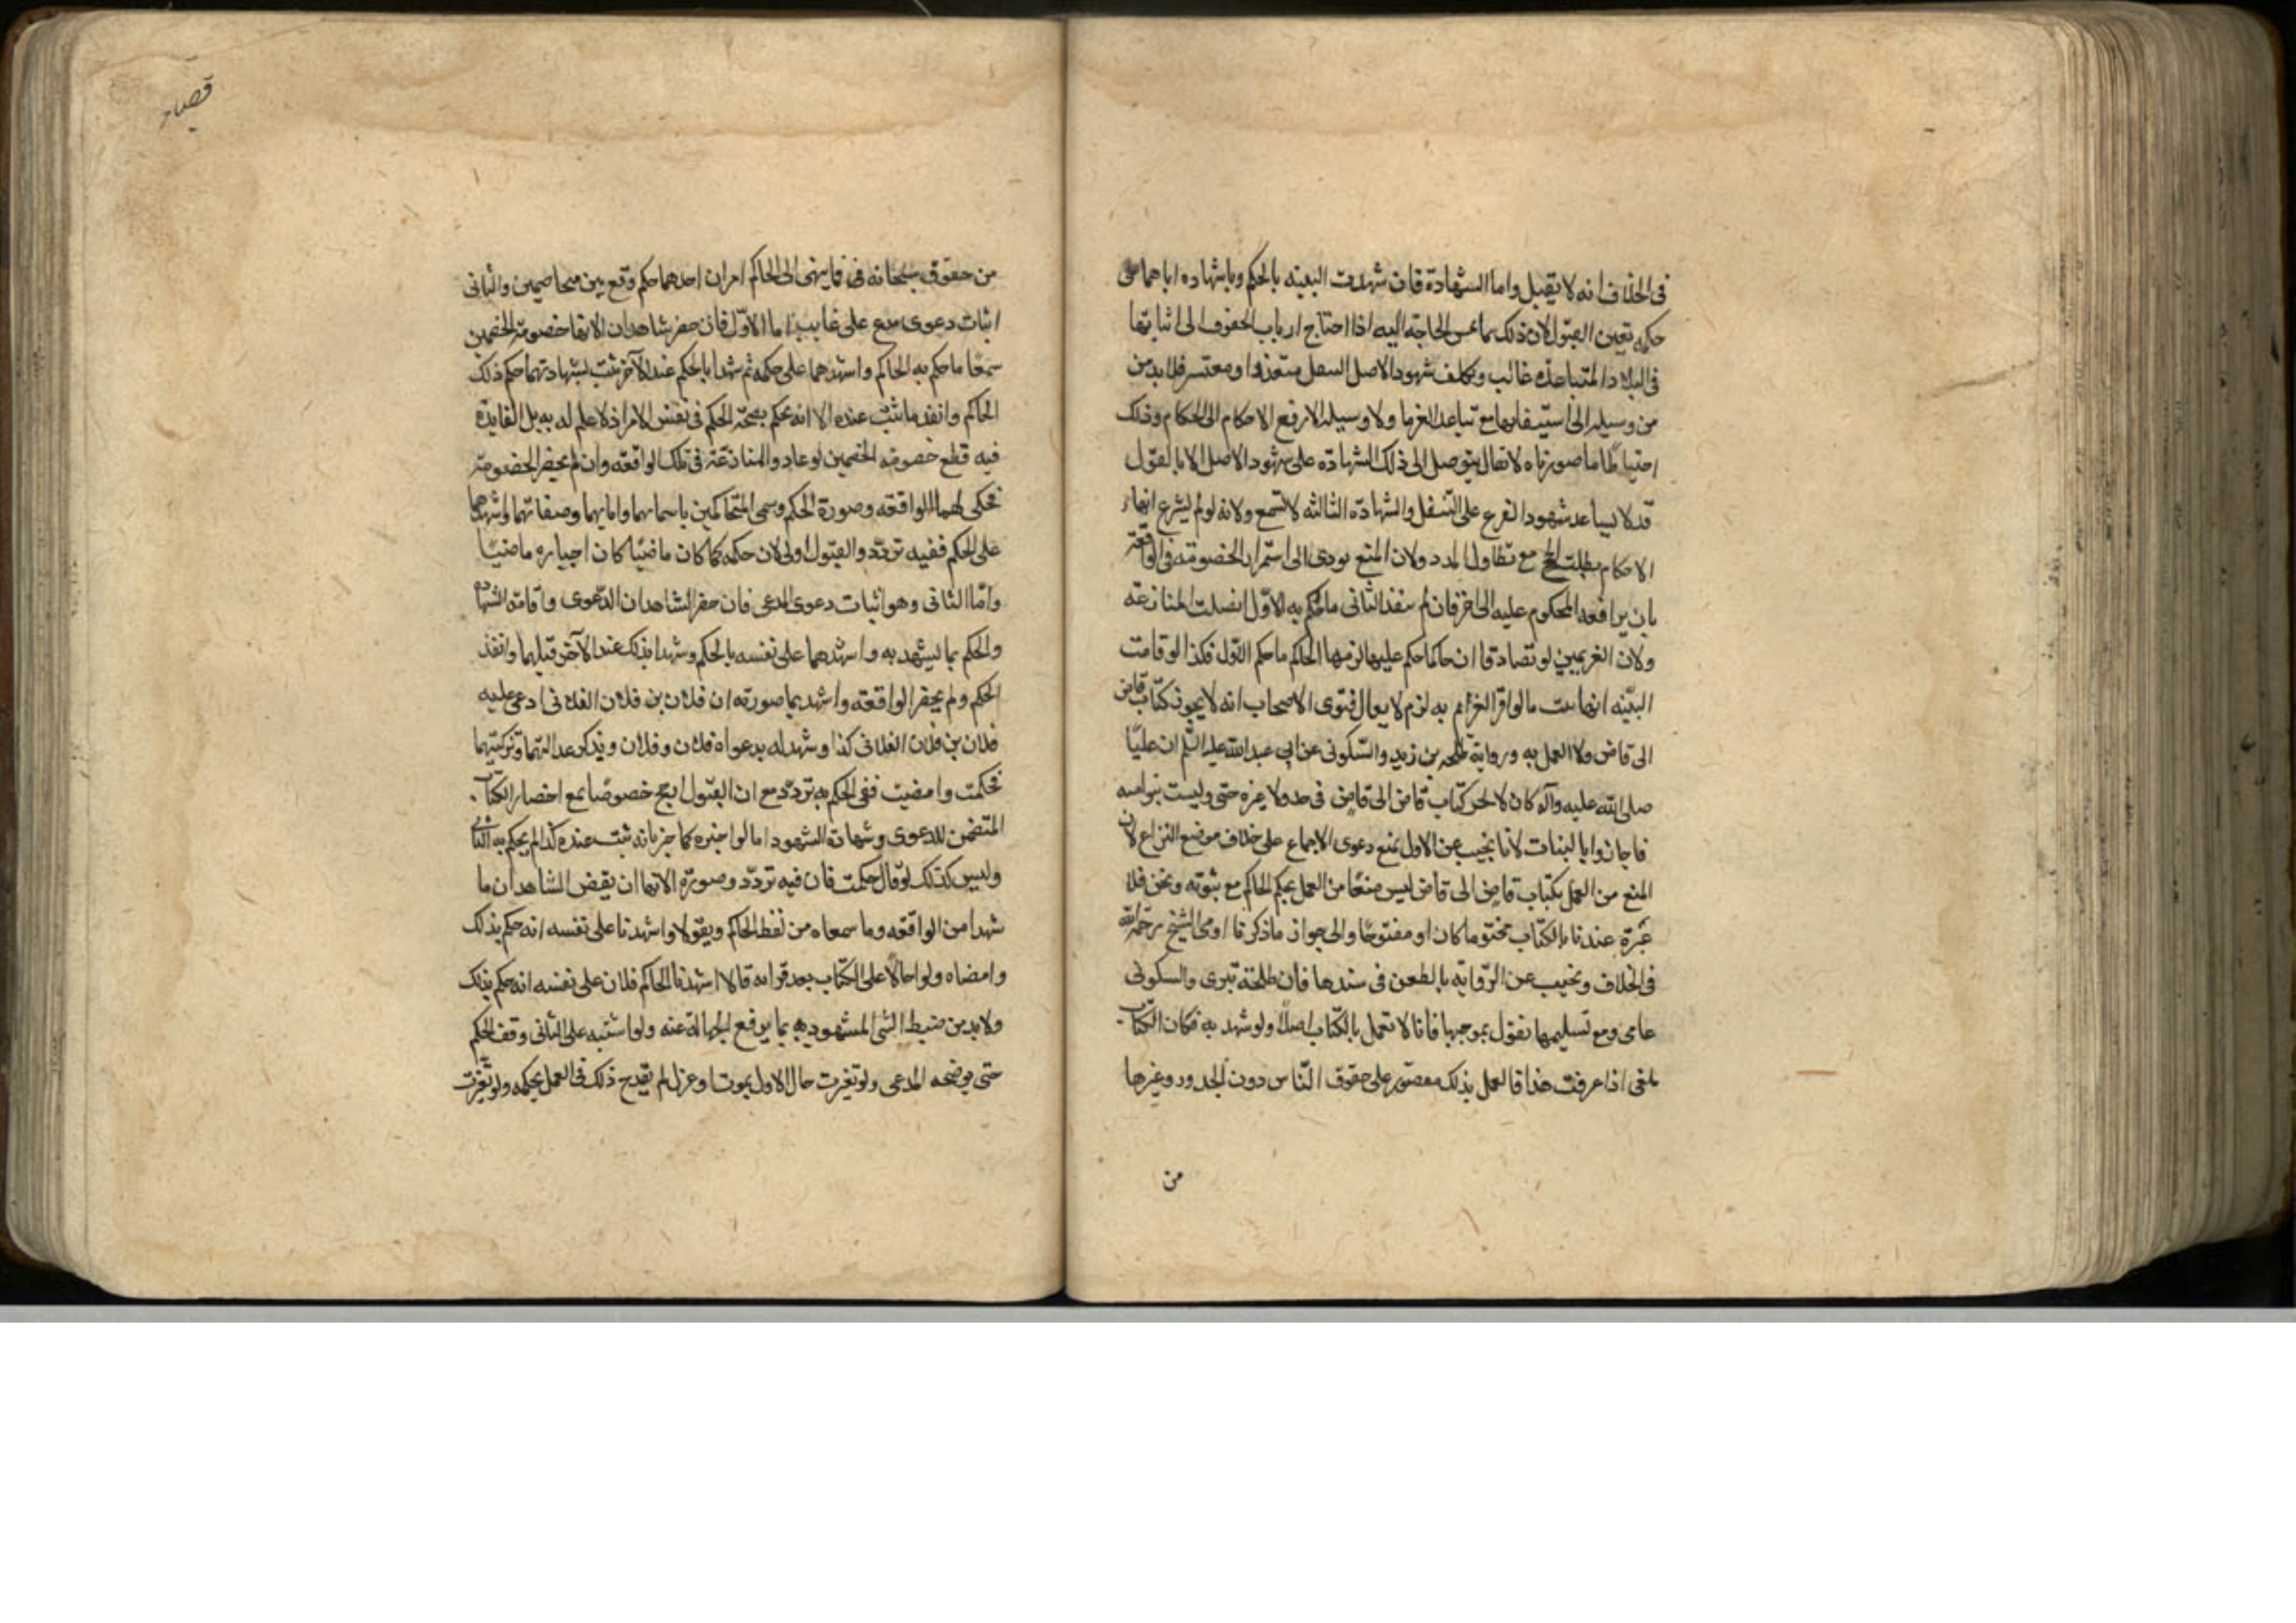 فى الخلاف انه لا يقبل واما الشهادة فان شهدت البينه بالحكم وباشهاده اياهما على
حكمه تعين القبول لان ذلك مما عس الحاجة اليه اذا احتاج ارباب الحقوق الى اثباتها
فى البلاد المتباعده غالب وتكلف شهود الاصل السعل متعذر او معتسر فلا بد من
من وسيله الى استيفائها مع تباعد الغرما ولا وسيله الا رفع الاحكام الى الحكام وذلك
احتياطا ما صورناه لا يقال يتوصل الى ذلك الشهاده على شهود الاصل الا نا نقول
قد لا يساعد شهود الفرع على التنقل والشهاده الثالثه لا تسمع ولانه لو لم يشرع انهاء
الاحكام بطلت الحجج مع تطاول المدد ولان المنع يودى الى استمرار الخصومة فى الواقعة
بان يرافعه المحكوم عليه الى اخر فان لم ينفذ الثانى ما حكم به الاول اتصلت المنازعه
ولان الغريمين لو تصادقا ان حاكما حكم عليهما الزمهما الحاكم ما حكم الاول فكذا لو قامت
البينه انها تثبت ما لو اقر الغرام به لزم لا يقال فتوى الاصحاب انه لا يجوز كتاب قاض
الى قاض ولا العمل به ورواية طلحه بن زيد والسكونى عن ابى عبد الله عليه السلم ان عليا
صلى الله عليه وآله كان لا يجيز كتاب قاض الى قاض فى حد ولا غيره حتى وليت بنو اميه
فاجازوا بالبينات لانا نجيب عن الاول بمنع دعوى الاجماع على خلاف موضع النزاع لان
المنع من العمل بكتاب قاض الى قاض ليس منعا من العمل بحكم الحاكم مع ثبوته ونحن فلا
عبرة عندنا بالكتاب مختوما كان او مفتوحا والى جواز ما ذكرنا اومى الشيخ رحمه الله
فى الخلاف ونجيب عن الرواية بالطعن فى سندها فان طلحة بترى والسكونى
عامى ومع تسليمها نقول بموجبها فانا لا نعمل بالكتاب اصلا ولو شهد به فكان الكتاب
ملغى اذا عرفت هذا فالعمل بذلك مقصور على حقوق الناس دون الحدود وغيرها
من
قصار
من حقوق سبحانه فى فما ينهى الى الحاكم امران احدهما حكم وقع بين متخاصمين والثانى
اثبات دعوى مدع على غايب اما الاول فان حضر شاهدان الانها خصومة الخصمين
سمعا ما حكم به الحاكم واشهدهما على حكمه ثم شهدا بالحكم عند الآخر ثبت بشهادتهما حكم ذلك
الحاكم وانفذ ما ثبت عنده الا انه يحكم بصحة الحكم فى نفس الامر اذ لا علم له به بل الفايدة
فيه قطع خصومه الخصمين لو عاودا المنازعة فى تلك الواقعه وان لم يحضر الخصومة
فحكى لهما الواقعه وصورة الحكم وسمى المتحاكمين باسمائهما وابايهما وصفاتهما واشهدهما
على الحكم ففيه تردد والقبول اولى لان حكمه كما كان ماضيا كان اخباره ماضيا
واما الثانى وهو اثبات دعوى المدعى فان حضر الشاهدان الدعوى واقامة الشهاده
والحكم بما يشهد به واشهدهما على نفسه بالحكم وشهدا بذلك عند الآخر قبلهما وانفذ
الحكم ولم يحضر الواقعه واشهد بما صورته ان فلان بن فلان الفلانى ادعى عليه
فلان بن فلان الفلانى كذا وشهد له بدعواه فلان وفلان ويذكر عدالتهما وتزكيتهما
فحكمت وامضيت ففى الحكم به تردد مع ان القبول ارجح خصوصا مع احضار الكتاب
المتضمن للدعوى وشهادة الشهود اما لو اخبره كما جز بانه ثبت عنده كذا لم يحكم به الثانى
وليس كذلك لو قال حكمت فان فيه تردد وصورة الانها ان يقض الشاهدان ما
شهدا من الواقعه وما سمعاه من لفظ الحاكم ويقولا واشهدنا على نفسه انه حكم بذلك
وامضاه ولو احالا على الكتاب بعد قراءه قالا اشهدنا الحاكم فلان على نفسه انه حكم بذلك
ولا بد من ضبط الشى المشهود به بما يرفع الجهالة عنه ولو اشتبه على الثانى وقف الحكم
حتى يوضحه المدعى ولو تغيرت حال الاول بموت او عزل لم يقدح ذلك فى العمل بحكمه ولو تغيرت